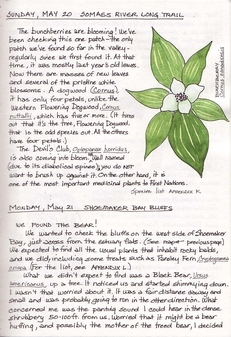 SUNDAY, MAY 20 SOMASS RIVER LONG TRAIL
The bunchberries are blooming! We've
been checking this one patch - the only
patch we've found so far in the valley -
regularly since we first found it. At that
time, it was mostly last year's old leaves.
Now there are masses of new leaves
and several of the pristine white
blossoms. A dogwood (Cornus),
it has only four petals, unlike the
Western Flowering Dogwood (Cornus
nuttallii), which has five or more. (It turns
out that it's the tree, Flowering Dogwood,
that is the odd species out. All the others
have four petals.)
The Devil's Club, Oplopanax horridus,
is also coming into bloom. Well named
(due to its diabolical spines), you do not
want to brush up against it. On the other hand, it is
one of the most important medicinal plants to First Nations.
Species list Appendix K
BUNCHBERRY
Cornus canadensis
MONDAY, MAY 21 SHOEMAKER BAY BLUFFS
WE FOUND THE BEAR!
We wanted to check the bluffs on the west side of Shoemaker
Bay, just across from the estuary flats. (See map - previous page)
We expected to find all the usual plants that inhabit rocky balds,
and we did, including some treats such as Parsley Fern, Cryptogramma
crispa (For the list, see APPENDIX L.)
What we didn't expect to find was a Black Bear, Ursus
americanus, up a tree. It noticed us and started shimmying down.
I wasn't that worried about it. It was a fair distance away and
small and was probably going to run in the other direction. What
concerned me was the panting sound I could hear in the dense
shrubbery 50-100ft from us. Worried that it might be a bear
huffing, and possibly the mother of the treed bear, I decided